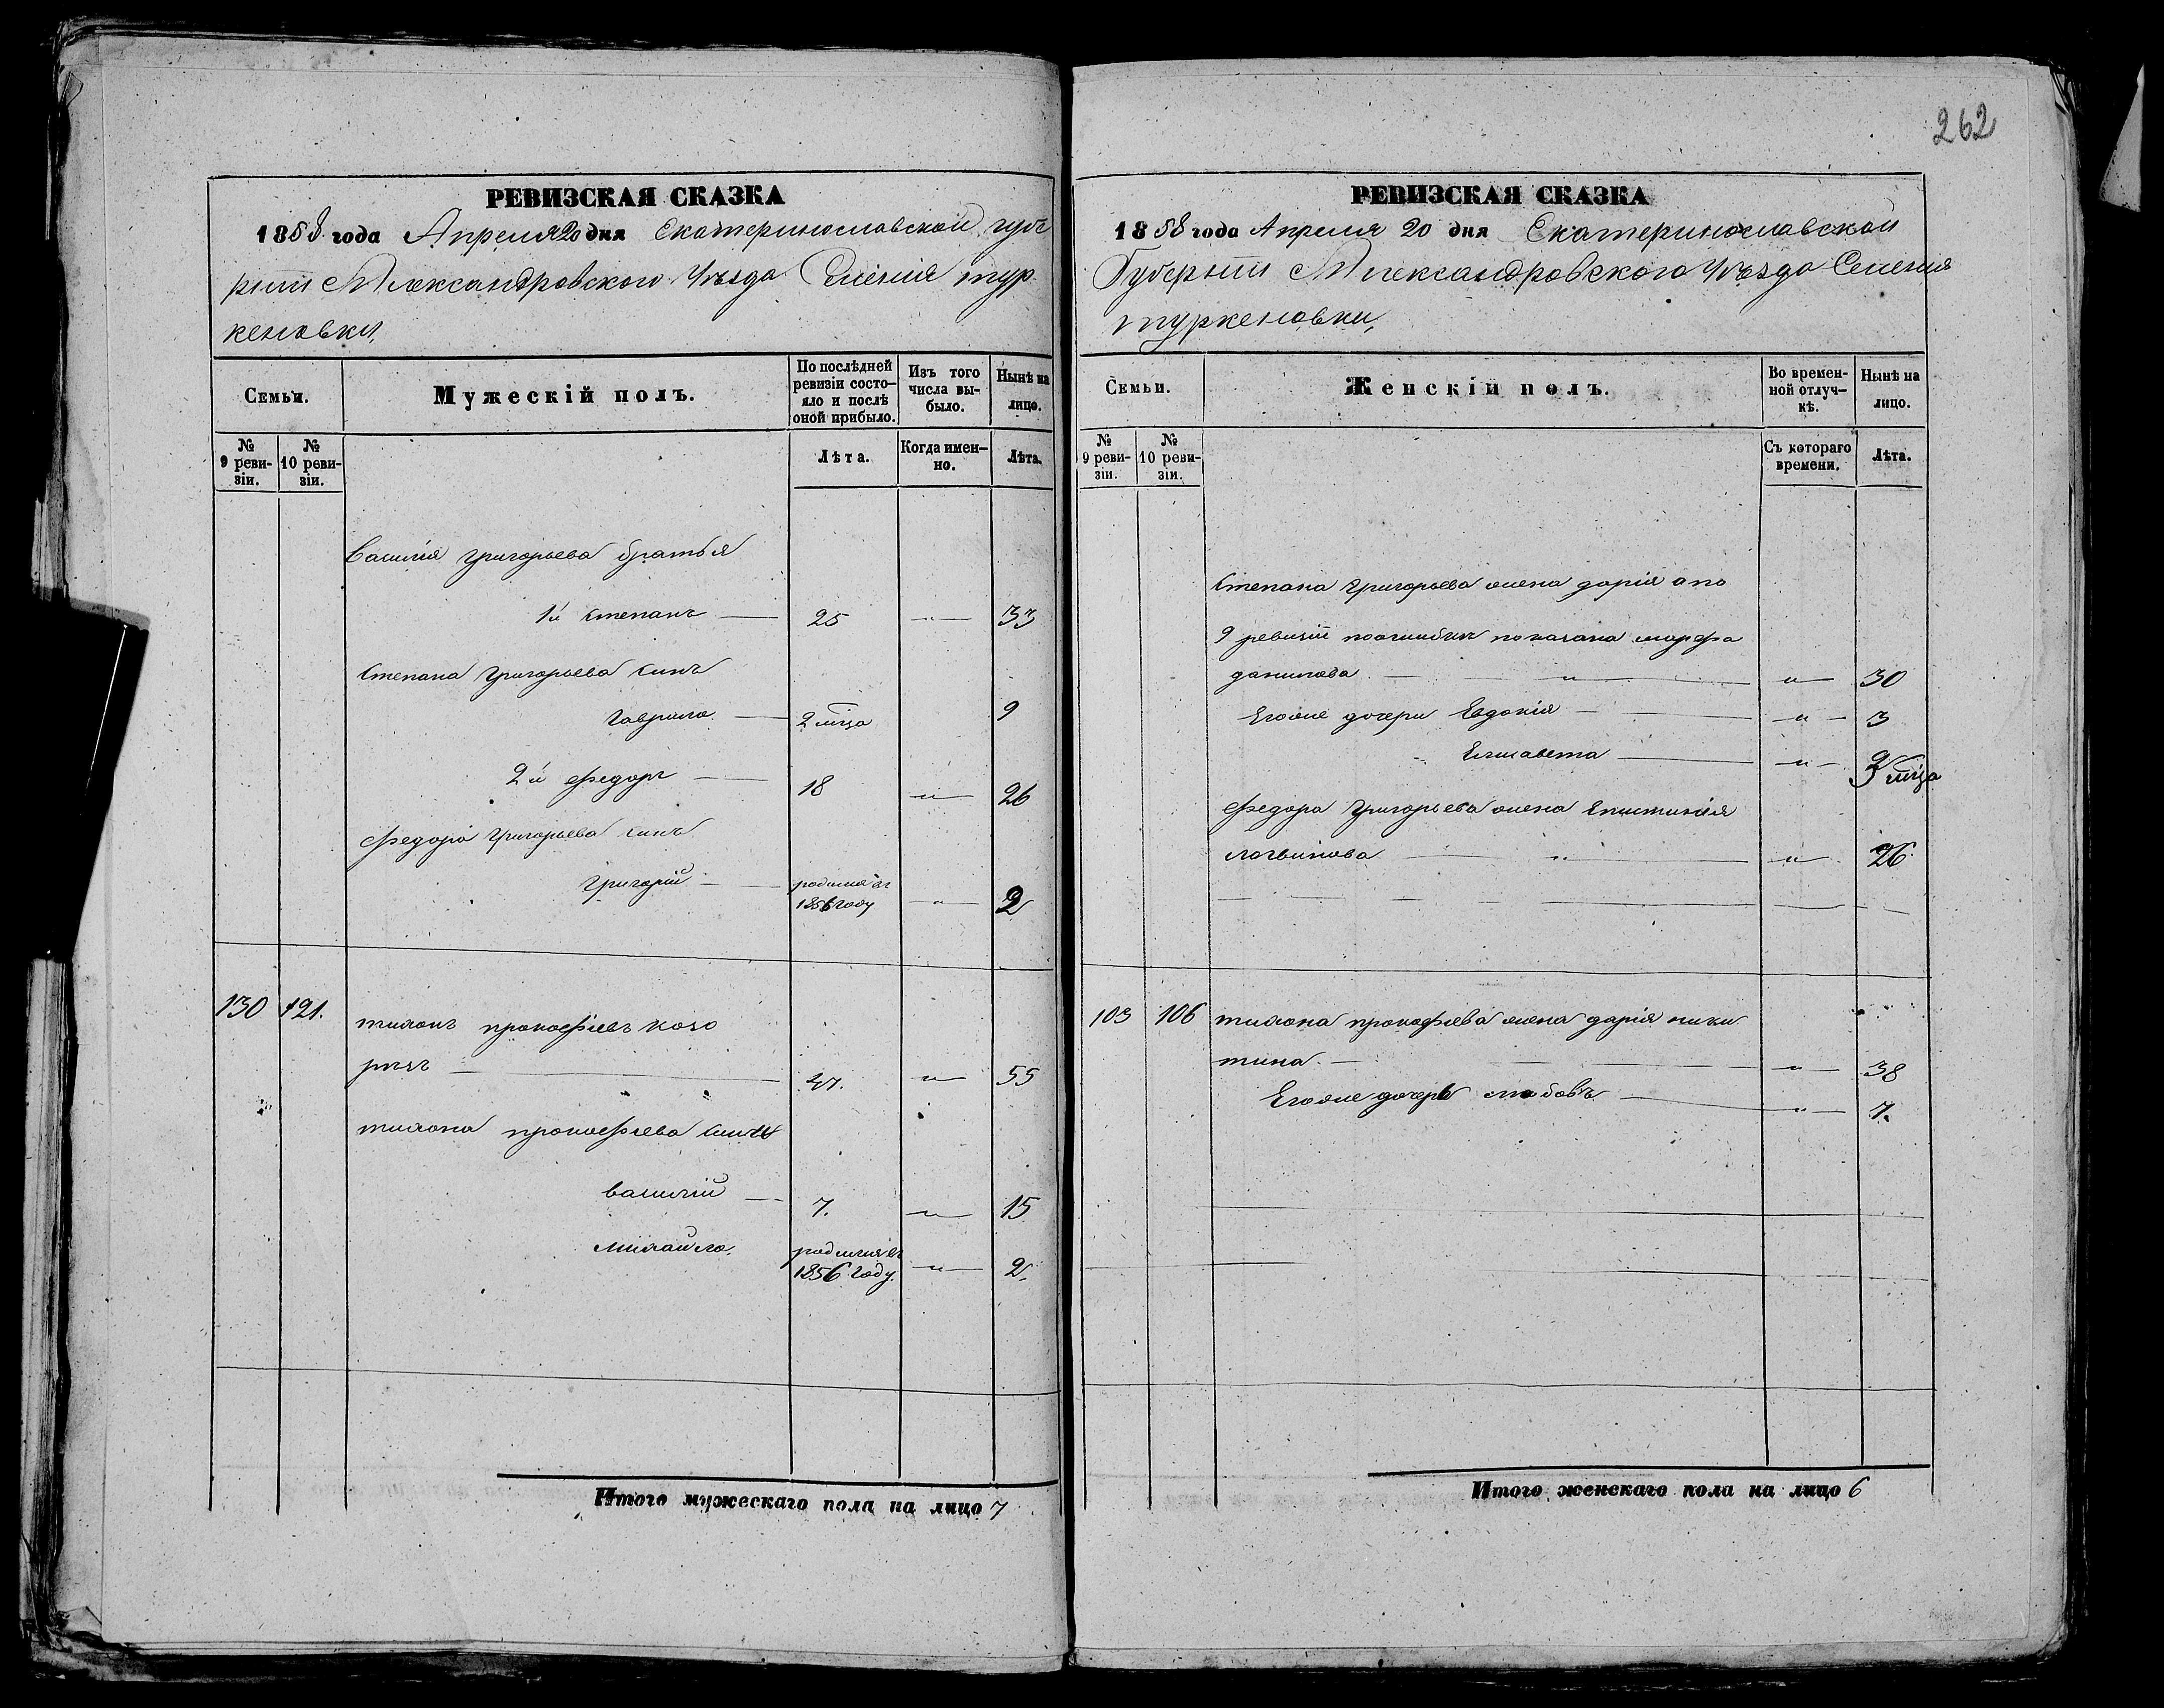 262
РЕВИЗСКАЯ СКАЗКА
1858 года Апреля 20 дня Екатеринославской губе
рнии Александровского Уѣзда Селенія тур
кеновки,
Семьи.
Мужескій полъ.
По послѣдней ревизіи состо-яло и послѣ оной прибыло.
Изъ того числа вы-было.
Нынѣ на лицо.
№ 9 реви-зіи.
№ 10 реви-зіи.
Лѣта.
Когда имен-но.
Лѣта.
Василія григорьева братья
1й степанъ — 25 — „ — 33
степана григорьева синъ
гаврило — 2 мѣца 9
2й федоръ — 18 — „ — 26
федора григорьева синъ
григорій — родился въ 1856 году — „ — 2
130 121. тихонъ прокофіевъ козо
ризъ — 47. „ — 55
тихона прокофіева сины
василій — 7. — „ — 15
михайло. родился въ 1856 году. — „ — 2.
Итого мужескаго пола на лицо 7
РЕВИЗСКАЯ СКАЗКА
1858 года Апреля 20 дня Екатеринославской
Губернии Александровского Уѣзда Селенія
туркеновки,
Семьи.
Женскій полъ.
Во времен-ной отлуч-кѣ.
Нынѣ на лицо.
№ 9 реви-зіи.
№ 10 реви-зіи.
Съ котораго времени.
Лѣта.
степана григорьева жена дарія а по
9 ревизіи поошибки показана марфа
данилова — „ — „ — 30
Егоже дочери Евдокія — — „ — 3
Елисавета — „ — мѣца
федора григорьева жена Епистинія
логвинова — „ — „ — 26
103 106 тихона прокофіева жена дарія ники
тина — — „ — 38
Егоже дочерь любовъ — „ — 7.
Итого женскаго пола на лицо 6